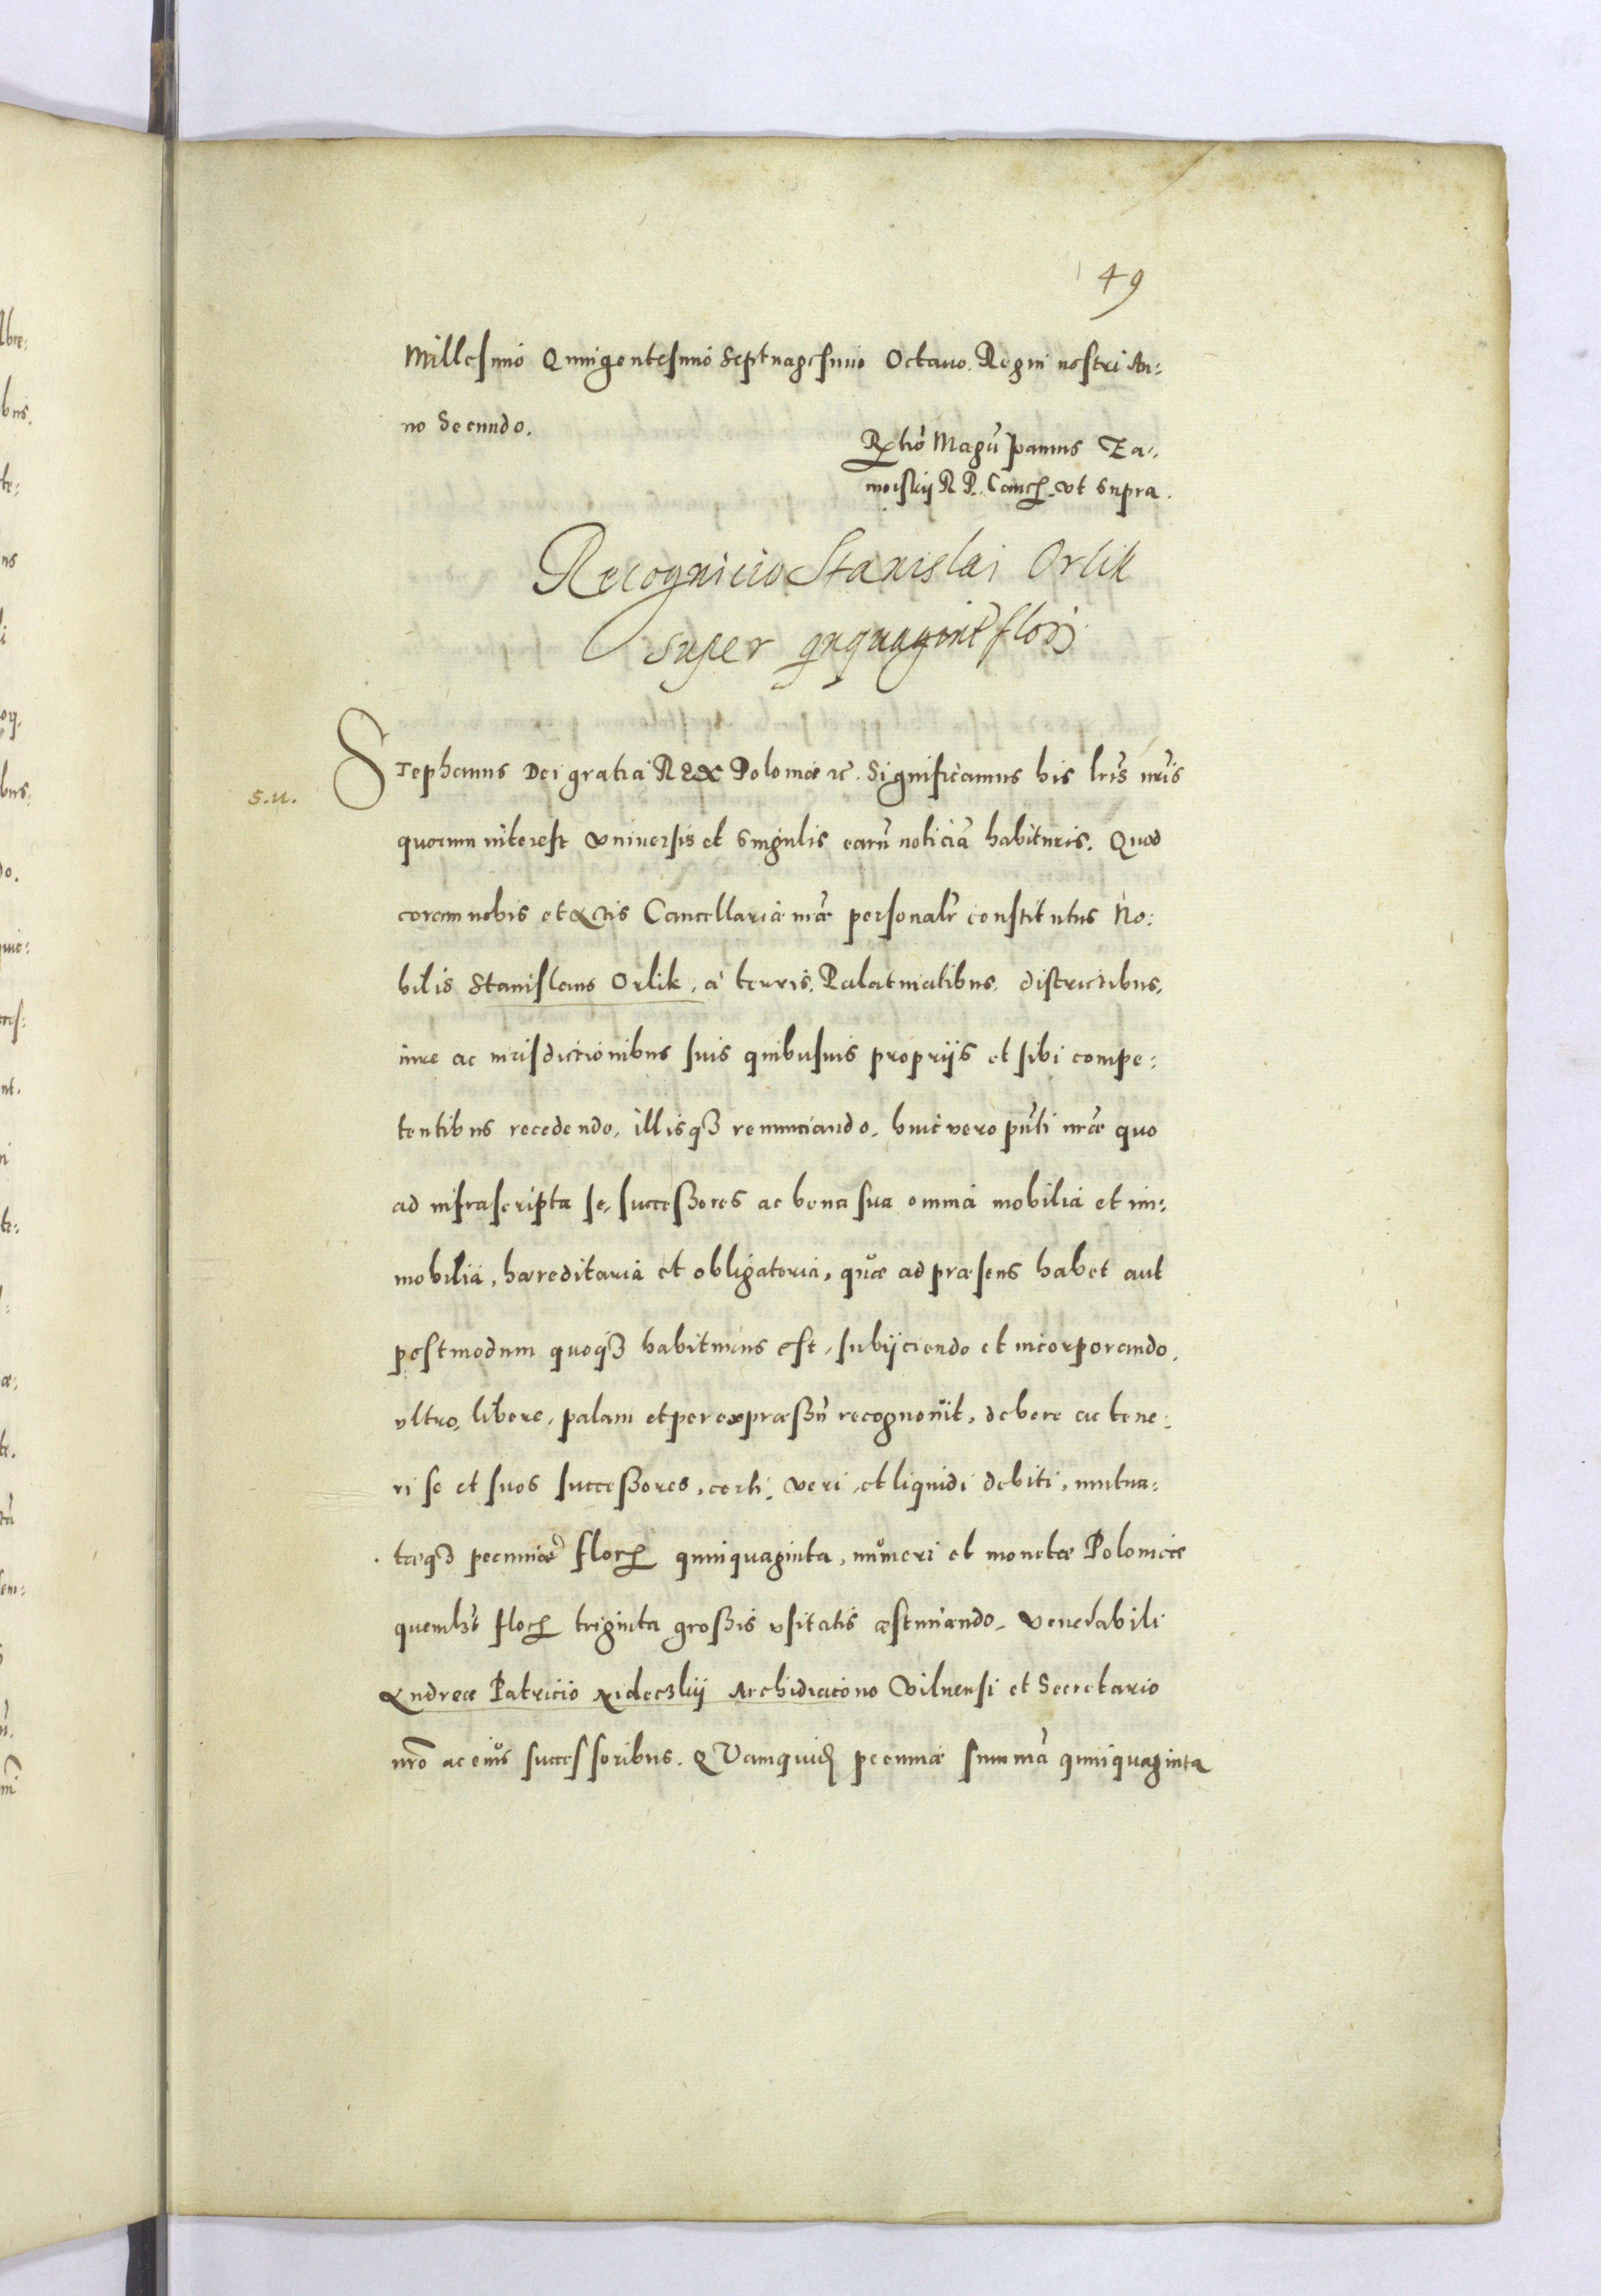 49
Millesimo Quingentesimo Septuagesimo Octavo. Regni nostri An:
no Secundo.
Rtio Magci Joannis Za:
moiskij R P. Canc. vt supra.
Recognicio Stanislai Orlik
super qnquagint flor
Stephanus Dei gratia REX Poloniae etc. Significamus his lris nris
s.u.
quorum interest vniuersis et singulis earu noticia habituris. Quod
coram nobis et Actis Cancellariae nrae personalr constitutus No:
bilis Stanislaus Orlik, a terris, Palatinatibus, districtibus,
iure ac iurisdictionibus suis quibusuis proprijs et sibi compe:
tentibus recedendo, illisq3 renunciando, huic vero pnti nrae quo
ad infrascripta se, successores ac bona sua omnia mobilia et im:
mobilia, haereditaria et obligatoria, quae ad praesens habet aut
postmodum quoq3 habiturus est, subijciendo et incorporando,
vltro, libere, palam et per expraessu recognouit, debere ac tene:
ri se et suos successores, certi, veri, et liquidi debiti, mutua:
taeq3 pecuniae flor quinquaginta, numeri et monetae Polonicae
quemlbt flor triginta grossis vsitatis aestimando, Venerabili
Andreae Patricio Nideczkij Archidiacono Vilnensi et Secretario
nro ac eius successoribus. QVamquid pecuniae summa quinquaginta